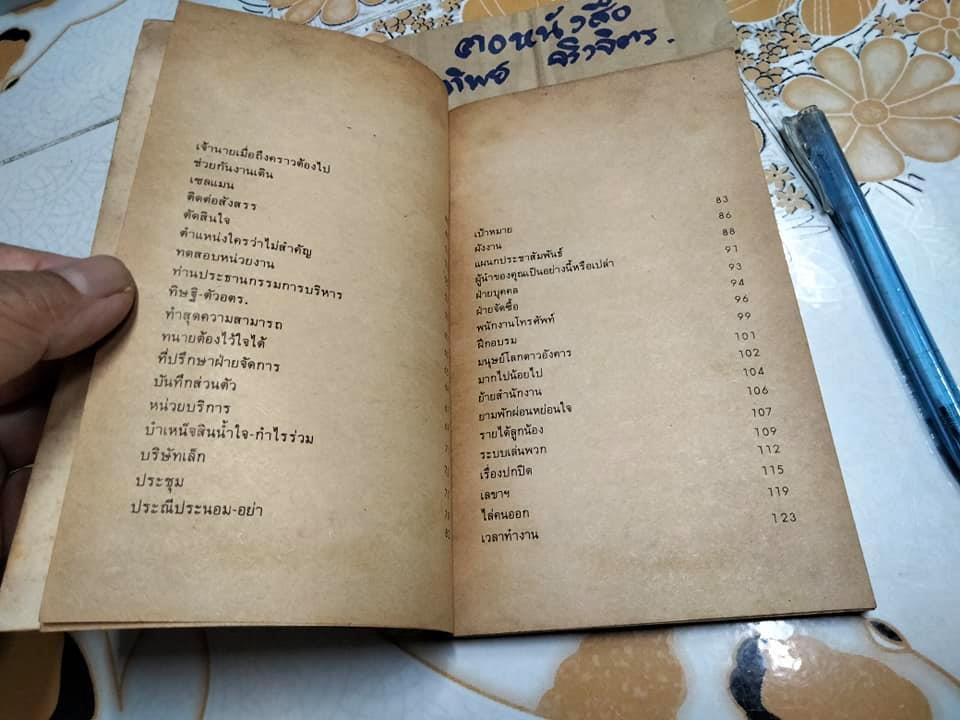 คอหนังสือ
จริงจิตร.
เจ้านายเมื่อถึงคราวต้องไป
ช่วยกันงานเดิน
เซลแมน
ติดต่อสังสรร
ตัดสินใจ
ตำแหน่งใครว่าไม่สำคัญ
ทดสอบหน่วยงาน
ท่านประธานกรรมการบริหาร
ทิษฐิ-ตัวอตร.
ทำสุดความสามารถ
ทนายต้องไว้ใจได้
ที่ปรึกษาฝ่ายจัดการ
บันทึกส่วนตัว
หน่วยบริการ
บำเหน็จสินน้ำใจ-กำไรร่วม
บริษัทเล็ก
ประชุม
ประณีประนอม-อย่า
เป้าหมาย 83
ผังงาน 86
แผนกประชาสัมพันธ์ 88
ผู้นำของคุณเป็นอย่างนี้หรือเปล่า 91
ฝ่ายบุคคล 93
ฝ่ายจัดซื้อ 94
พนักงานโทรศัพท์ 96
ฝึกอบรม 99
มนุษย์โลกดาวอังคาร 101
มากไปน้อยไป 102
ย้ายสำนักงาน 104
ยามพักผ่อนหย่อนใจ 106
รายได้ลูกน้อง 107
ระบบเล่นพวก 109
เรื่องปกปิด 112
เลขาฯ 115
ไล่คนออก 119
เวลาทำงาน 123